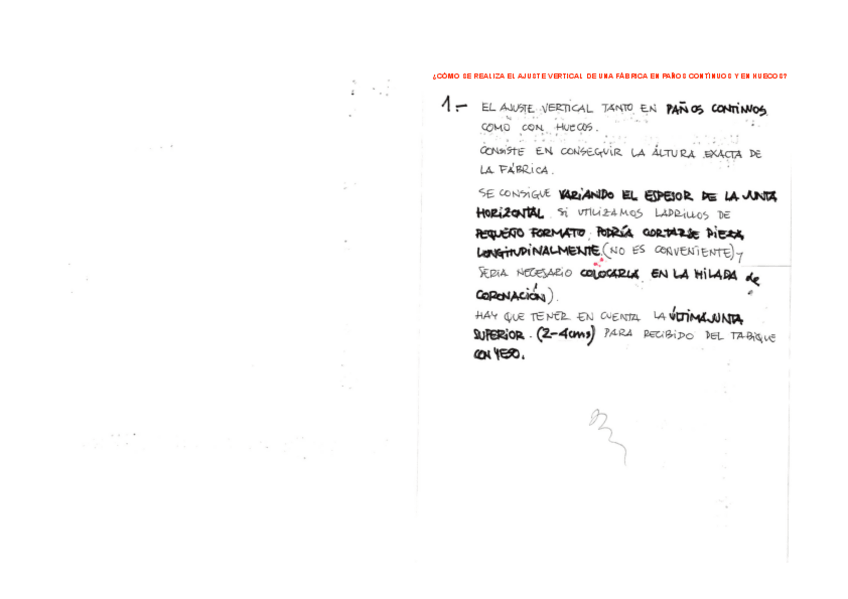 ¿CÓMO SE REALIZA EL AJUSTE VERTICAL DE UNA FÁBRICA EN PAÑOS CONTINUOS Y EN HUECOS?
1.- EL AJUSTE VERTICAL TANTO EN PAÑOS CONTINUOS
COMO CON HUECOS.
CONSISTE EN CONSEGUIR LA ALTURA EXACTA DE
LA FÁBRICA.
SE CONSIGUE VARIANDO EL ESPESOR DE LA JUNTA
HORIZONTAL. SI UTILIZAMOS LADRILLOS DE
PEQUEÑO FORMATO PODRÍA CORTARSE PIEZA
LONGITUDINALMENTE (NO ES CONVENIENTE) y
SERIA NECESARIO COLOCARLA EN LA HILADA de
CORONACIÓN).
HAY QUE TENER EN CUENTA LA ÚLTIMA JUNTA
SUPERIOR. (2-4cms) PARA RECIBIDO DEL TABIQUE
CON YESO.